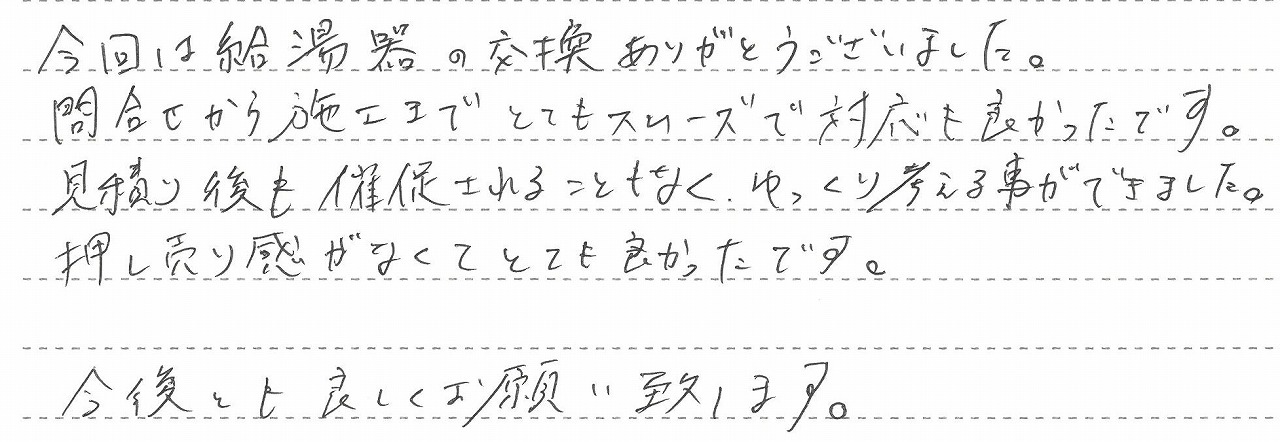 今回は給湯器の交換ありがとうございました。
問合せから施工までとてもスムーズで対応も良かったです。
見積り後も催促されることもなく、ゆっくり考える事ができました。
押し売り感がなくてとても良かったです。
今後とも良しくお願い致します。